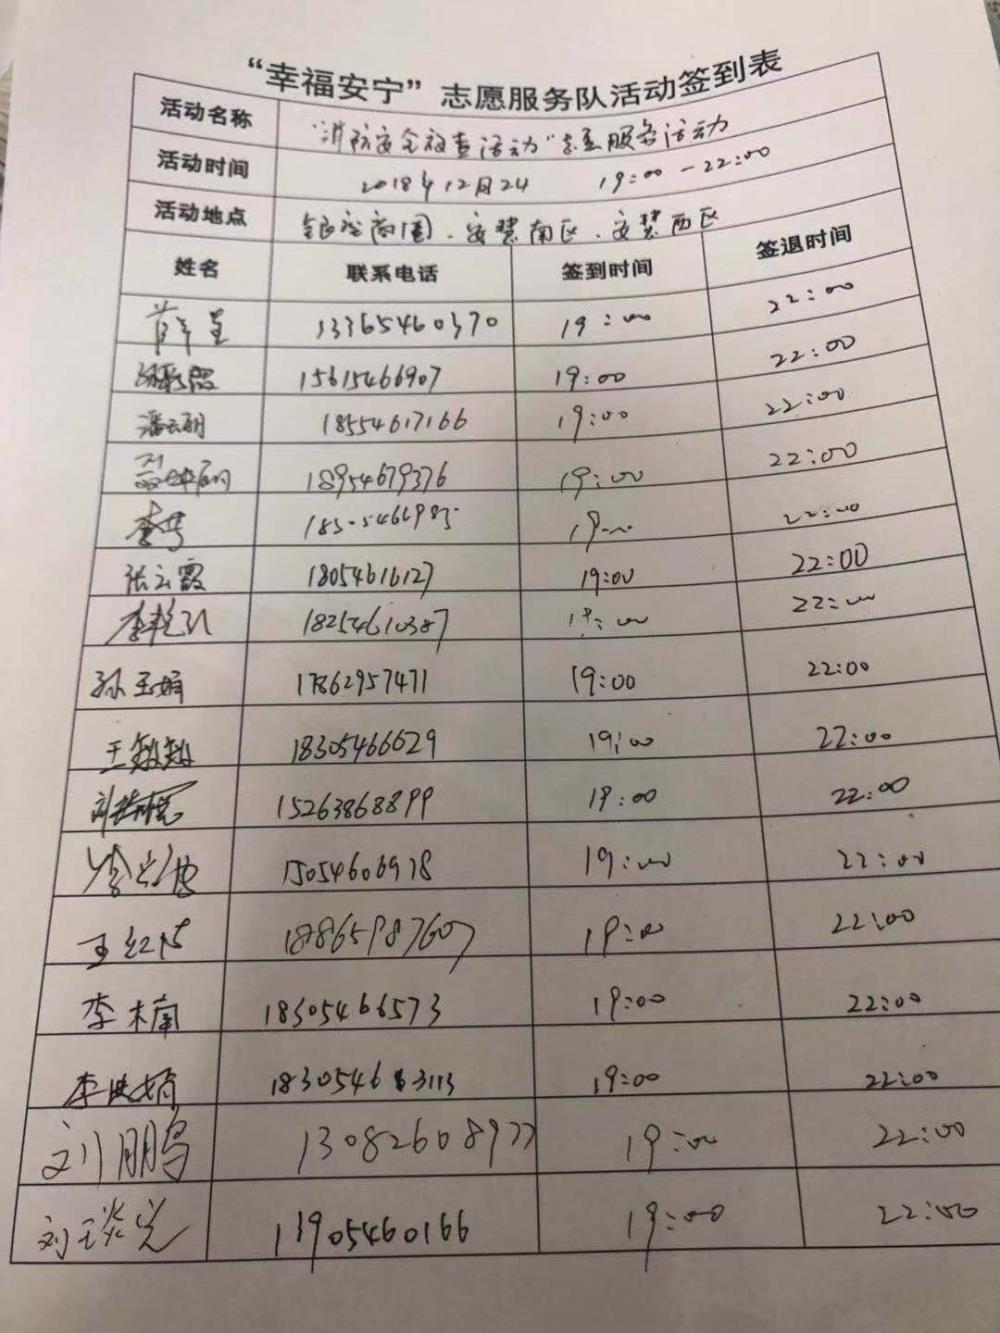 “幸福安宁”志愿服务队活动签到表
活动名称 “消防安全检查活动”志愿服务活动
活动时间 2018年12月24 19:00-22:00
活动地点 银座商圈、安慧南区、安慧西区
姓名 联系电话 签到时间 签退时间
13365460370 19:00 22:00
15615466907 19:00 22:00
潘云朋 18554617166 19:00 22:00
18954679376 19:00 22:00
19:00 22:00
张云霞 18054616127 19:00 22:00
李艳 18254610387 19:00 22:00
孙玉娟 17862957471 19:00 22:00
王敏敏 18305466629 19:00 22:00
15263868899 19:00 22:00
15054606918 19:00 22:00
王红 18865987607 19:00 22:00
李木南 18305466573 19:00 22:00
李 1830546 3113 19:00 22:00
刘鹏 13082608977 19:00 22:00
刘琰 13905460166 19:00 22:00